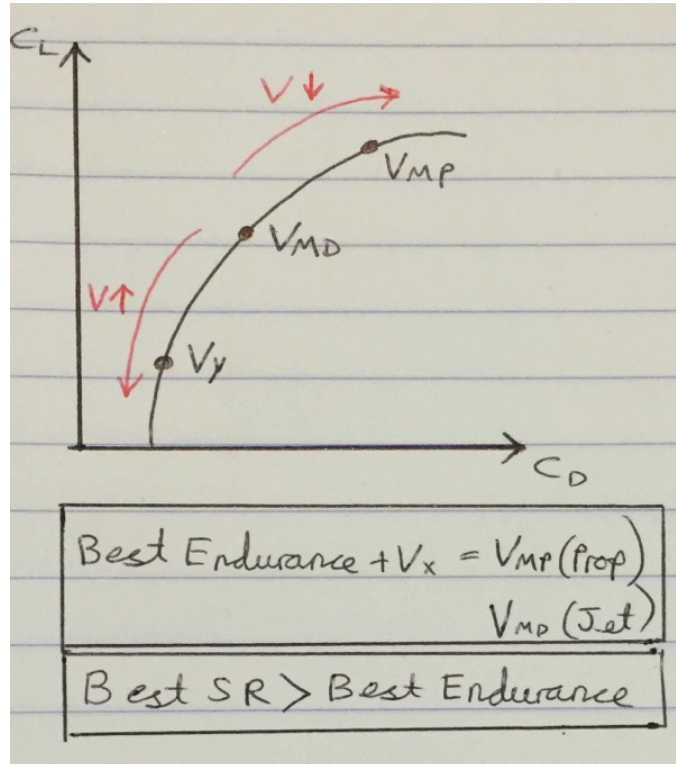 CL
V ↓
VMP
VMD
V↑
Vy
CD
Best Endurance + Vx = VMP (Prop)
VMD (Jet)
Best SR > Best Endurance